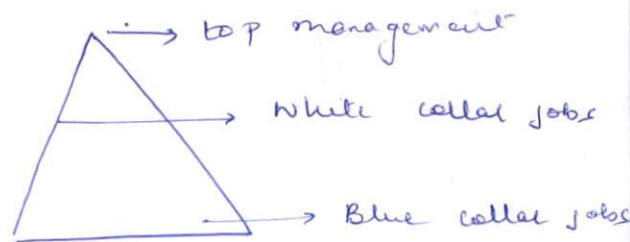 top management
White collar jobs
Blue collar jobs